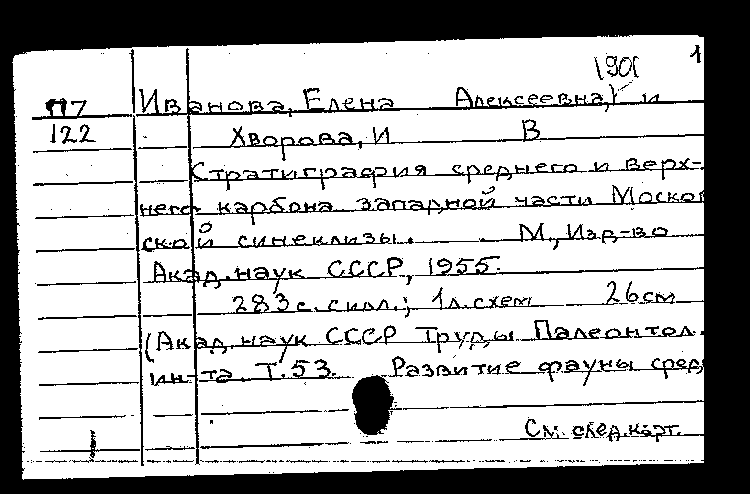 1
1901
П7 Иванова, Елена Алексеевна, и
122 Хворова, И В
Стратиграфия среднего и верх-
него карбона западной части Москов
ской синеклизы. М., Изд-во
Акад. наук СССР, 1955.
283 с. с илл.; 1 л. схем 26 см
(Акад. наук СССР Труды Палеонтол.
ин-та. Т. 53. Развитие фауны сред
См. след. карт.